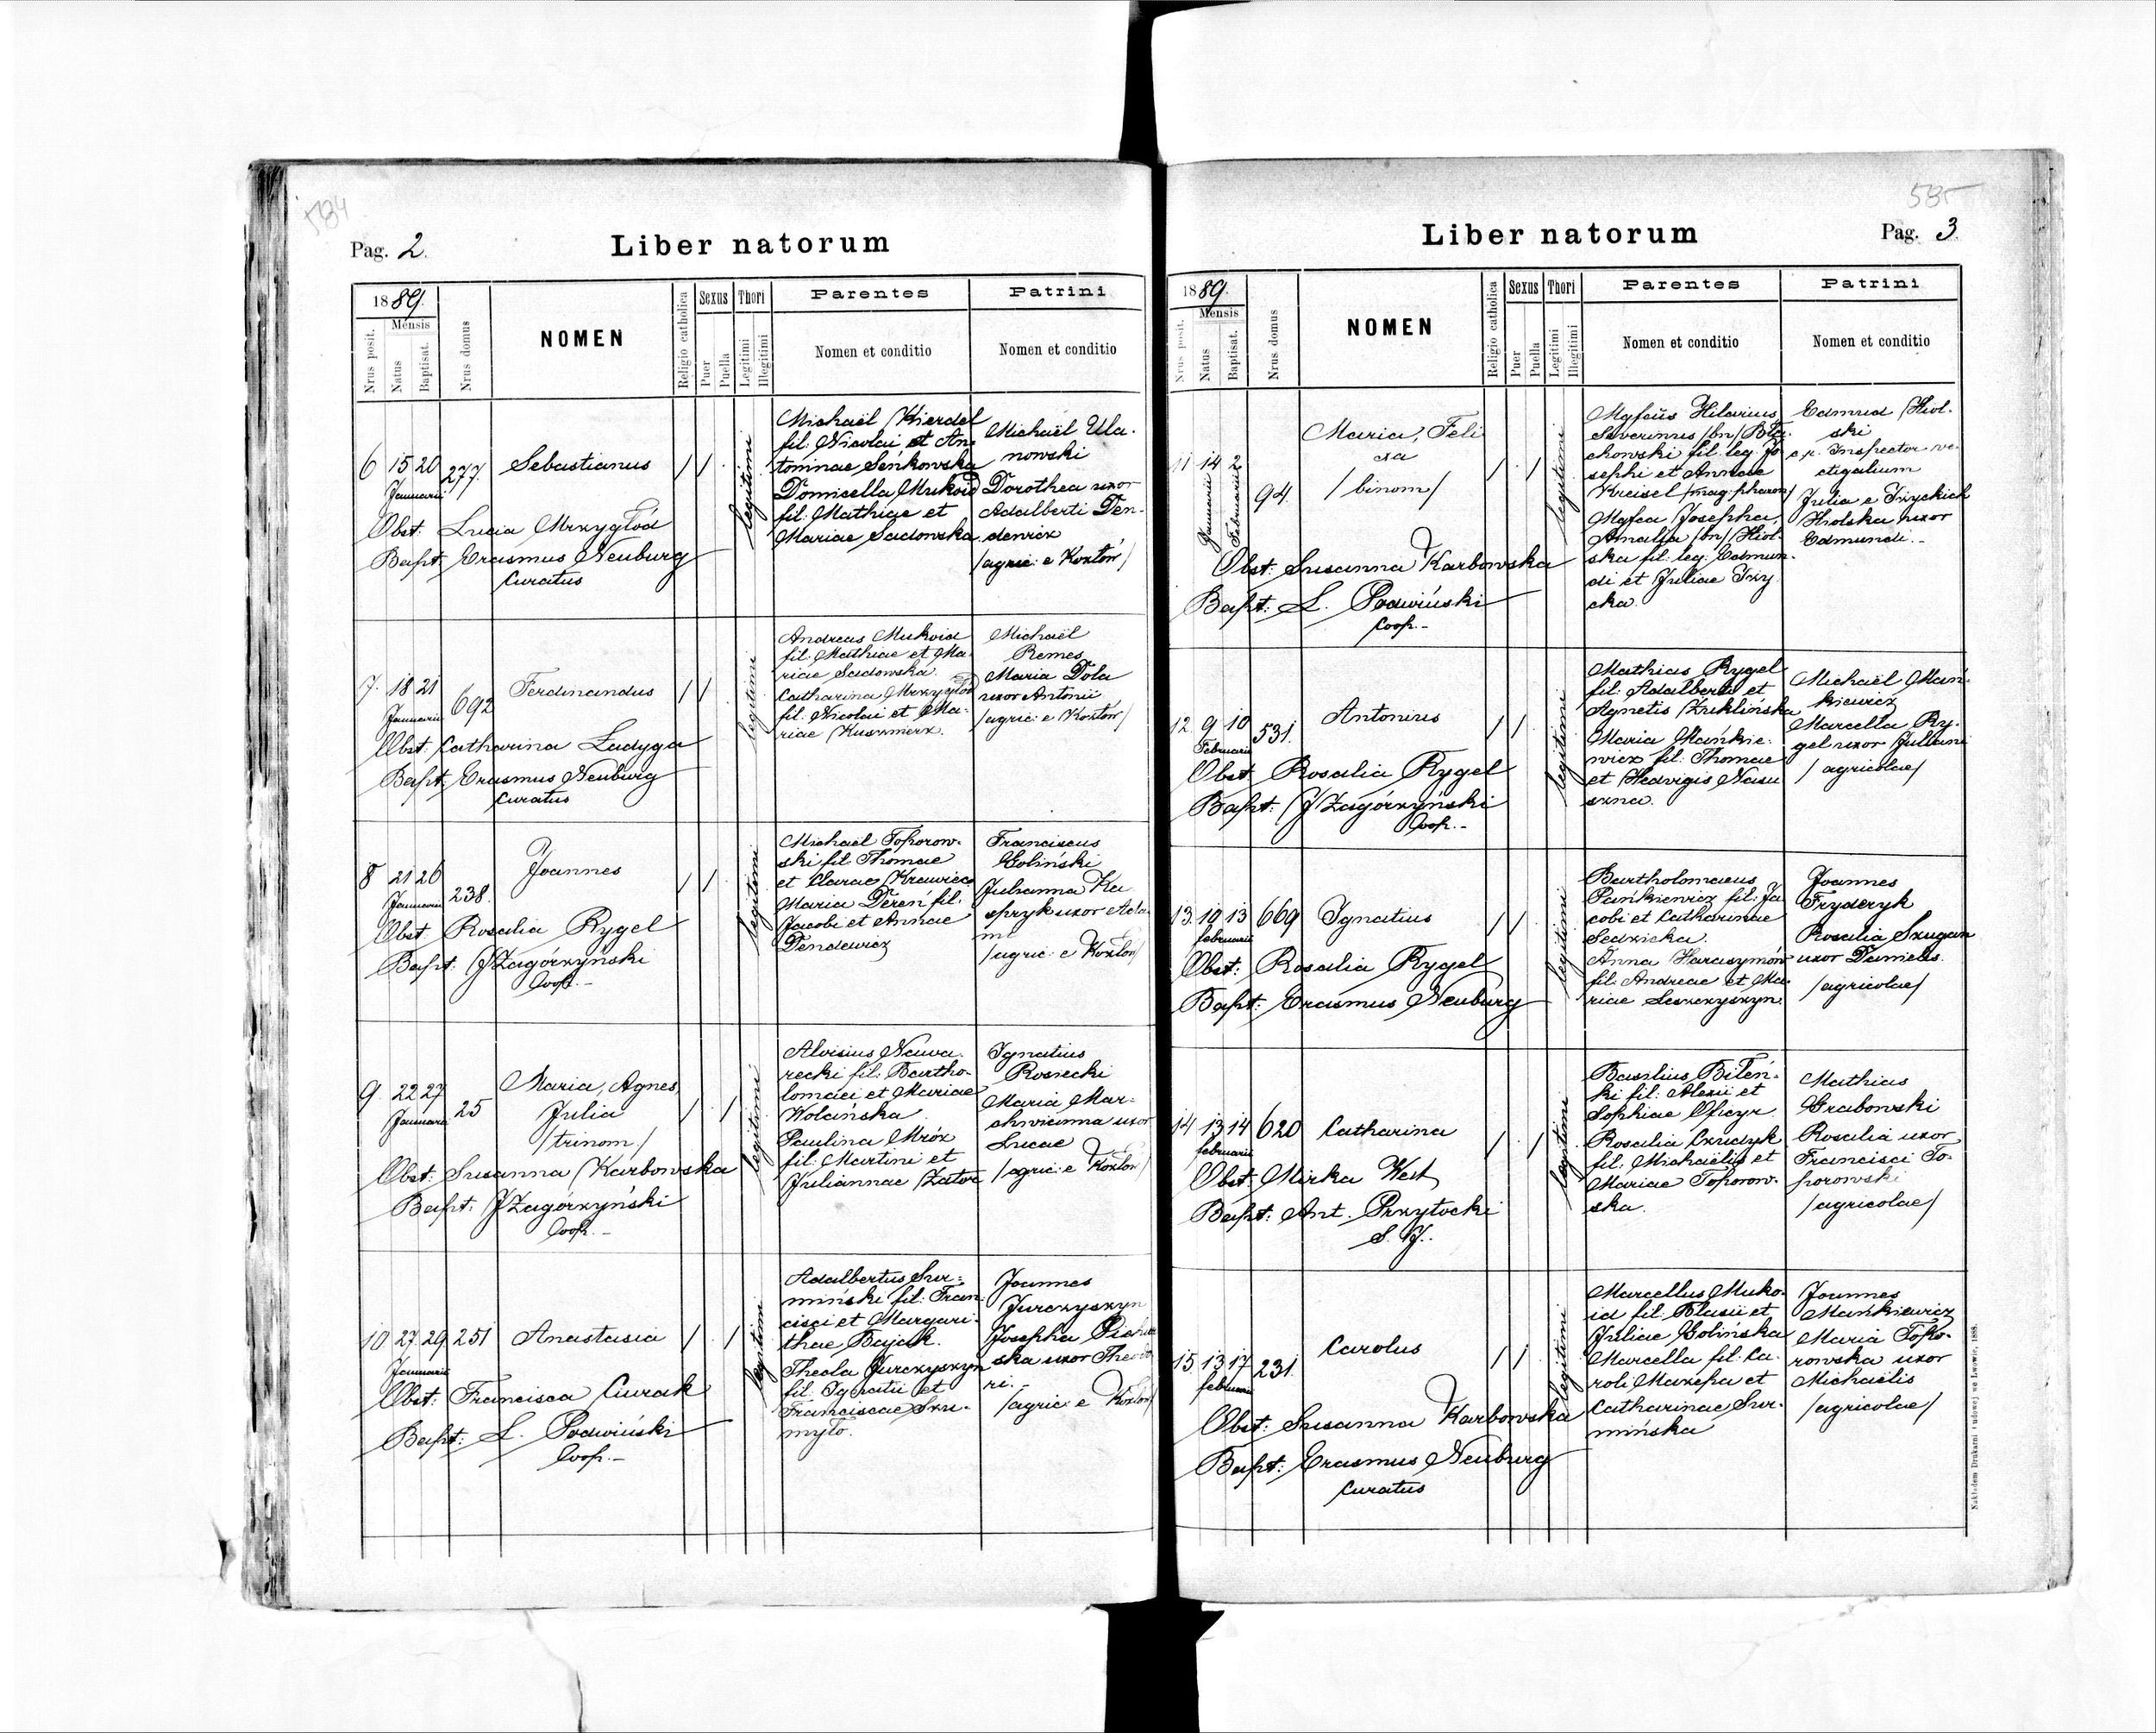 584
Pag. 2.
Liber natorum
1889.
Mensis
Nrus posit.
Natus
Baptisat.
Nrus domus
NOMEN
Religio catholica
Sexus
Puer
Puella
Thori
Legitimi
Illegitimi
Parentes
Nomen et conditio
Patrini
Nomen et conditio
6 15 20 277. Sebastianus
Januarii
legitimi
Obst. Lucia Mrzygłód
Bapt. Erasmus Neuburg
Curatus
Michaël Kierdel
fil: Nicolai et An
toninae Seńkowska
Domicella Mukoid
fil: Mathiae et
Mariae Sadowska.
Michaël Ula-
nowski
Dorothea uxor
Adalberti Den-
dewicz
/agric: e Kozłów/
7. 18 21 692 Ferdinandus
Januarii
legitimi
Obst. Catharina Ładyga
Bapt. Erasmus Neuburg
Curatus
Andreas Mukoid
fil: Mathiae et Ma
riae Sadowska.
Catharina Mrzygłód
fil: Nicolai et Ma-
riae Kuszmerz.
Michaël
Remes
Maria Dola
uxor Antonii
/agric: e Kozłów/
8 21 26 238. Joannes
Januarii
legitimi
Obst Rosalia Rygel
Bapt. J Zagórzyński
Coop. -
Michaël Toporow-
ski fil Thomae
et Clarae Krawiec
Maria Dereń fil:
Jacobi et Annae
Dendewicz
Franciscus
Goliński
Julianna Ka
spryk uxor Ada
mi
/agric: e Kozłów/
9. 22 27 25 Maria, Agnes,
Julia
/trinom./
Januarii
legitimi
Obst: Susanna Karbowska
Bapt: J Zagórzyński
Coop. -
Aloisius Nawa
recki fil: Bartho-
lomaei et Mariae
Wolańska
Paulina Mróz
fil: Martini et
Juliannae Zator
Ignatius
Rosiecki
Maria Mar-
chwianna uxor
Lucae
/agric: e Kozłów/
10 27 29 251 Anastasia
Januarii
legitimi
Obst: Francisca Ciurak
Bapt: L. Podwiński
Coop. -
Adalbertus Sur-
miński fil: Fran
cisci et Margari-
thae Bajak.
Thecla Jurczyszyn
fil. Ignatii et
Franciscae Szu-
myło.
Joannes
Jurczyszyn
Josepha
ska uxor Theodo
ri. -
/agric: e Kozłów/
585
Liber natorum
Pag. 3
1889.
Mensis
Nrus posit.
Natus
Baptisat.
Nrus domus
NOMEN
Religio catholica
Sexus
Puer
Puella
Thori
Legitimi
Illegitimi
Parentes
Nomen et conditio
Patrini
Nomen et conditio
11 14 2 94. Maria, Feli
cia
/binom/
Januarii
Februarii
legitimi
Obst: Susanna Karbowska
Bapt: L. Podwiński
Coop. -
Mgfcus Hilarius
Severinus /bn/ Bła
chowski fil. leg. Jo
sephi et Annae
Kreisel /mag. pharm/
Mgfca Josepha,
Amalja /bn/ Hiol-
ska fil: leg. Edmun-
di et Juliae Irzy
cka.
Edmund Hiol-
ski
c.r. Inspector ve
ctigalium
Julia e Irzyckich
Hiolska uxor
Edmundi. -
12. 9 10 531. Antonius
Februarii
legitimi
Obst. Rosalia Rygel
Bapt: J Zagórzyński
Coop. -
Mathias Rygel
fil: Adalberti et
Agnetis Zuklińska
Maria Mańkie-
wicz fil: Thomae
et Hedvigis Nasu
szna.
Michaël Mań-
kiewicz
Marcella Ry-
gel uxor Juliani
/agricolae/
13. 10 13 669 Ignatius
februarii
legitimi
Obst: Rosalia Rygel
Bapt: Erasmus Neuburg
Bartholomaeus
Pańkiewicz fil: Ja
cobi et Catharinae
Sedzicka.
Anna Harasymów
fil: Andreae et Ma-
riae Leszczyszyn.
Joannes
Fryderyk
Rosalia Szugan
uxor Danielis.
/agricolae/
14 13 14 620 Catharina
februarii
legitimi
Obst: Mirka West
Bapt: Ant. Przytocki
S. J.
Basilius Bileń-
ki fil: Alexii et
Sophiae Oficyr
Rosalia Czudyk
fil: Michaëlis et
Mariae Toporow-
ska.
Mathias
Grabowski
Rosalia uxor
Francisci To-
porowski
/agricolae/
15. 13 17 231. Carolus
februarii
legitimi
Obst: Susanna Karbowska
Bapt: Erasmus Neuburg
Curatus
Marcellus Muko-
id fil: Blasii et
Juliae Golińska
Marcella fil: Ca-
roli Mazepa et
Catharinae Sur-
mińska
Joannes
Mańkiewicz
Maria Topo-
rowska uxor
Michaëlis
/agricolae/
Nakładem Drukarni Ludowej we Lwowie, 1888.